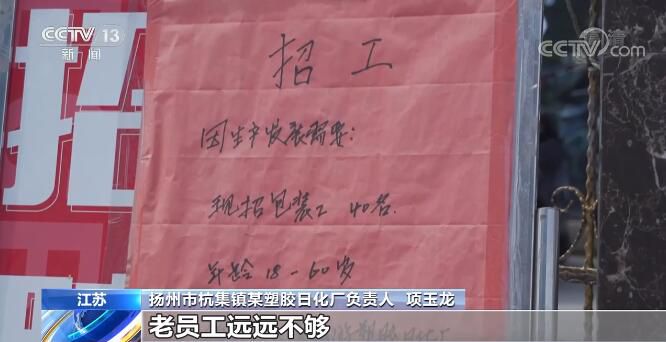 CCTV 13
新闻
CCTV.com
招
招工
因生产发展需要:
现招包装工 40名.
年龄 18-60岁
江苏
扬州市杭集镇某塑胶日化厂负责人 项玉龙
老员工远远不够